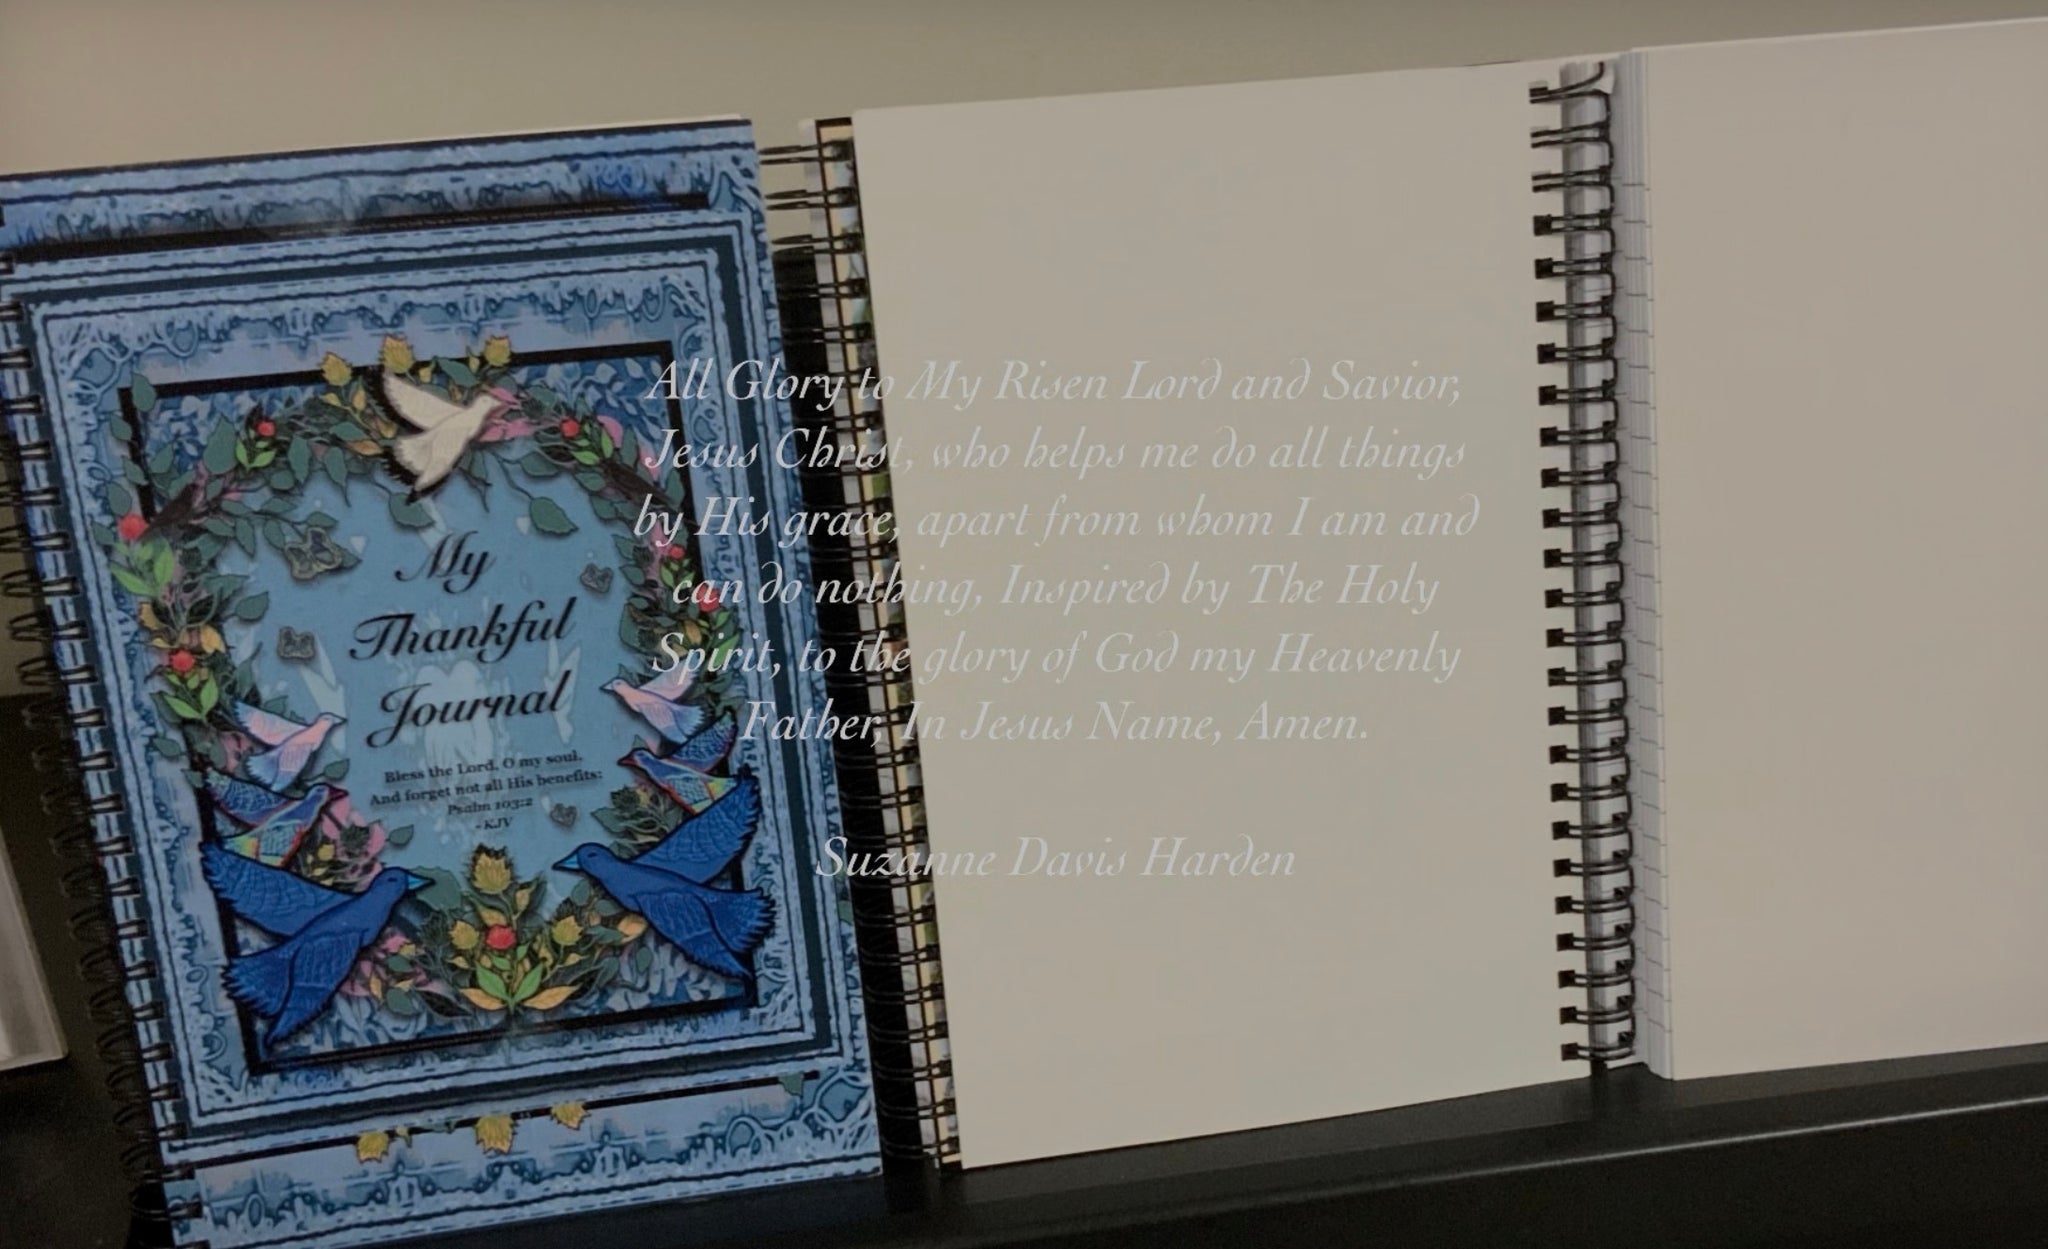 My
Thankful
Journal
Bless the Lord, O my soul,
And forget not all His benefits:
Psalm 103:2
-KJV
All Glory to My Risen Lord and Savior,
Jesus Christ, who helps me do all things
by His grace, apart from whom I am and
can do nothing, Inspired by The Holy
Spirit, to the glory of God my Heavenly
Father, In Jesus Name, Amen.
Suzanne Davis Harden